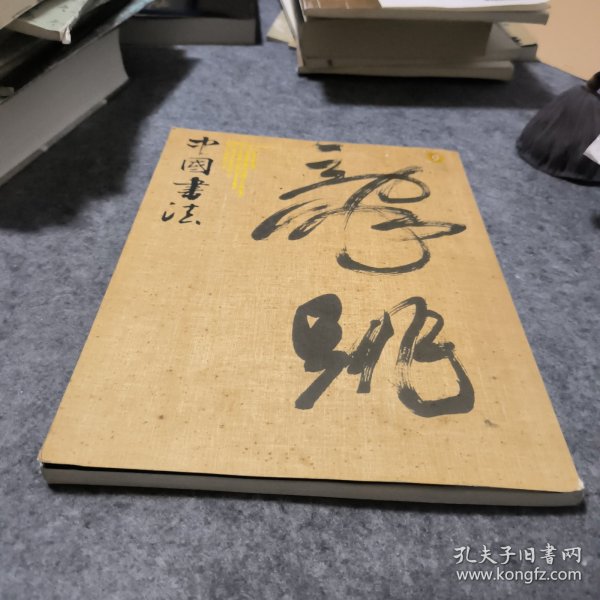 中國書法
龍跳
孔夫子旧书网
www.kongfz.com